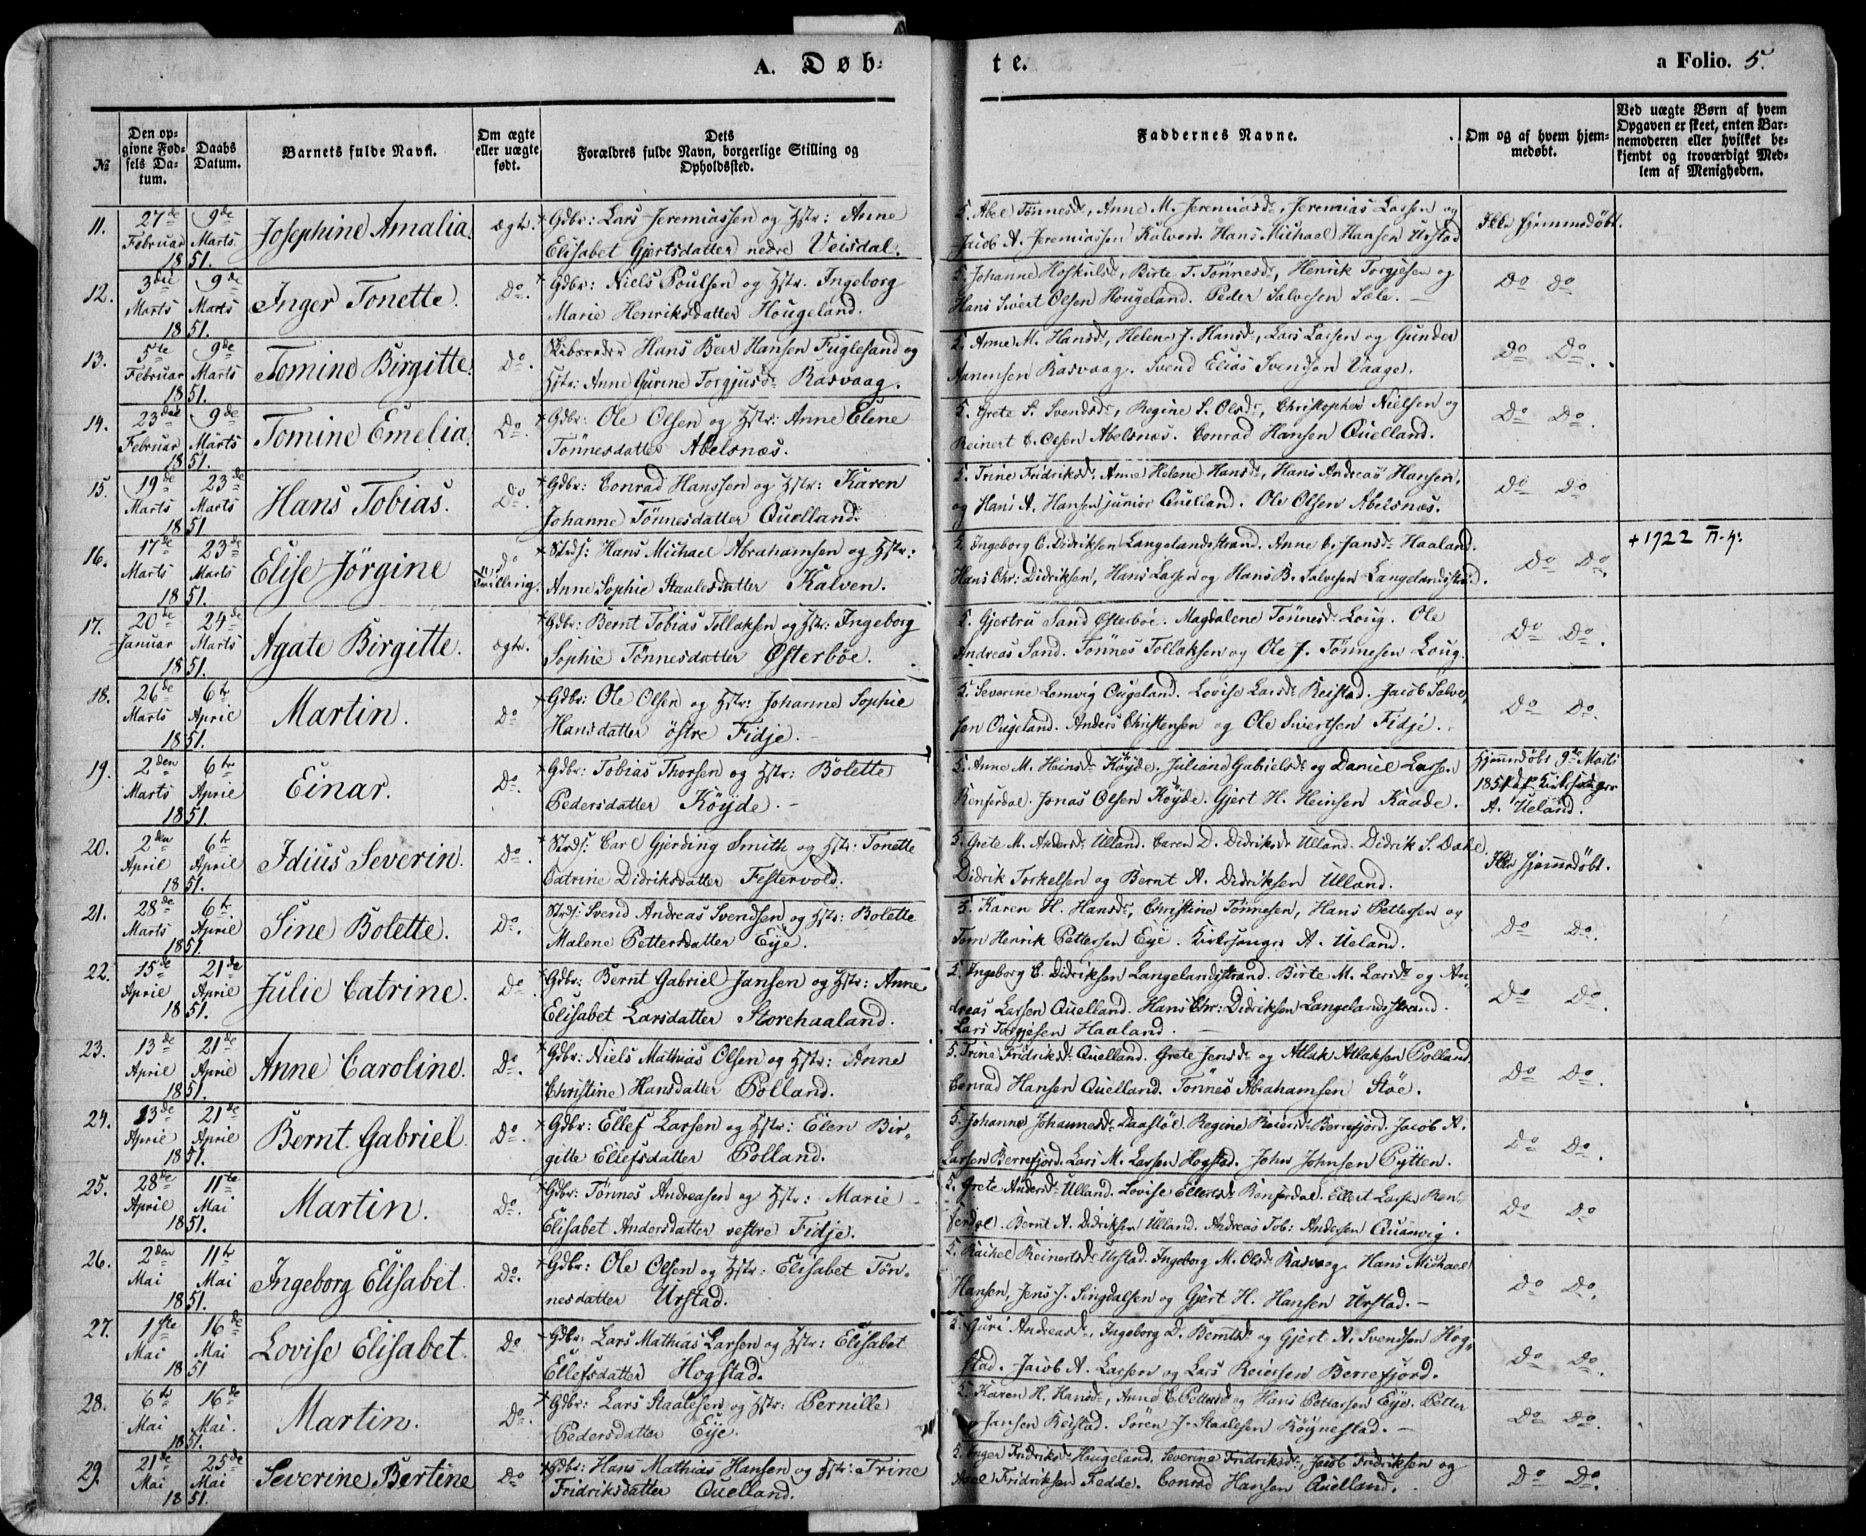 A. Døb-
te.
a Folio. 5.
№
Den op-
givne Fød-
sels Da-
tum.
Daabs
Datum.
Barnets fulde Navn.
Om ægte
eller uægte
født.
Dets
Forældres fulde Navn, borgerlige Stilling og
Opholdssted.
Faddernes Navne.
Om og af hvem hjem-
medøbt.
Ved uægte Børn af hvem
Opgaven er skeet, enten Bar-
nemoderen eller hvilket be-
kjendt og troværdigt Med-
lem af Menigheden.
11. 27de Februar 1851. 9de Marts Josephine Amalia. ægte.
Gdbr: Lars Jeremiassen og Hstr: Anne
Elisabet Gjertsdatter nedre Veisdal.
5. Abel Tønnesdr, Anne M. Jeremiasdr, Jeremias Larsen og
Jacob A. Jeremiassen Kalven. Hans Michael Hansen Urstad
Ikke hjemmedøbt.
12. 3die Marts 1851. 9de Marts Inger Tonette. Do.
Gdbr: Niels Poulsen og Hstr. Ingeborg
Marie Henriksdatter Hougeland.
5. Johanne Hoskulsdr, Birte T. Tønnesdr, Henrik Torgjesen og
Hans Sivert Olsen Hougeland. Peder Salvesen Sæle.
Do Do
13. 5te Februar 1851. 9de Marts Tomine Birgitte. Do.
Skibsreder Hans Beer Hansen Fuglesand og
Hstr: Anne Gurine Torgjusdr Rasvaag.
5. Anne M. Hansdr, Helene J. Hansdr, Lars Larsen og Gunder
Aanensen Rasvaag. Svend Elias Svendsen Vaage.
Do Do.
14. 23de Februar 1851. 9de Marts Tomine Emelia. Do.
Gdbr: Ole Olsen og Hstr: Anne Elene
Tönnesdatter Abelsnæs.
5. Grete S. Svendsdr, Regine S. Olsdr, Christopher Nielsen og
Reinert C. Olsen Abelsnæs. Conrad Hansen Quelland.
Do Do.
15. 19de Marts 1851 23de Marts Hans Tobias. Do.
Gdbr: Conrad Hanssen og Hstr: Karen
Johanne Tönnesdatter Quelland.
5. Trine Fridriksdr. Anne Helene Hansdr, Hans Andreas Hansen,
og Hans A. Hansen junior Quelland. Ole Olsen Abelsnæs.
Do Do
16. 17de Marts 1851. 23de Marts Elise Jörgine Do Tvilling.
Strds: Hans Michael Abrahamsen og Hstr:
Anne Sophie Staalesdatter Kalven.
5. Ingeborg C. Didriksen Langelandsstrand. Anne C. Jansdr Haaland.
Hans Chr: Didriksen, Hans Larsen og Hans B. Salvesen Langelandsstrand.
Do Do.
+1922
17. 20de Januar 1851. 24de Marts Agate Birgitte. ægte.
Gdbr: Bernt Tobias Tollaksen og Hstr: Ingeborg
Sophie Tönnesdatter Østerbøe.
5. Gjertru Sand Østerboe. Magdalene Tönnesdr Loug. Ole
Andreas Sand. Tønnes Tollaksen og Ole J. Tønnesen Loug.
Do Do.
18. 26de Marts 1851. 6te April Martin. Do
Gdbr: Ole Olsen og Hstr: Johanne Sophie
Hansdatter östre Fidje.
5. Severine Lomvig Ougeland. Lovise Larsdr Reistad. Jacob Salve-
sen Ougeland. Anders Christensen og Ole Sivertsen Fidje.
Do Do.
19. 2den Marts 1851. 6te April Einar. Do.
Gdbr: Tobias Thorsen og Hstr: Bolette
Pedersdatter Köyde.
5. Anne M. Heinsdr Köyde. Juliane Gabrielsdr og Daniel Larsen
Renferdal. Jonas Olsen Köyde. Gjert H. Heinsen Kaade.
Hjemmedøbt 9de Marts
1851 af Kirkesanger
A. Ueland.
20. 2den April 1851. 6te April Idius Severin. Do.
Strds: Carl Gjerding Smith og Hstr: Tonette
Catrine Didriksdatter Festervold.
5. Grete M. Andersdr Ulland. Caren D. Didriksdr Ulland. Didrik S. Dahl,
Didrik Torkelsen og Bernt A. Didriksen Ulland.
Ikke hjemmedøbt.
21. 28de Marts 1851. 6te April Sine Bolette. Do.
Strds: Svend Andreas Svendsen og Hstr: Bolette
Malene Pettersdatter Eye.
5. Karen H. Hansdr, Christine Tønnesen, Hans Pettersen og
Tom Henrik Pettersen Eye. Kirkesanger A. Ueland.
Do Do.
22. 15de April 1851. 21de April Julie Catrine. Do.
Gdbr: Bernt Gabriel Jansen og Hstr: Anne
Elisabet Larsdatter Storehaaland.
5. Ingeborg C. Didriksen Langelandsstrand. Birte M. Larsdr og An-
dreas Larsen Quelland. Hans Chr: Didriksen Langelandsstrand.
Lars Torgjesen Haaland.
Do Do.
23. 13de April 1851. 21de April Anne Caroline. Do.
Gdbr: Niels Mathias Olsen og Hstr: Anne
Christine Hansdatter Polland.
5. Trine Fridriksdr Quelland. Grete Jensdr og Atlak Atlaksen Polland.
Conrad Hansen Quelland. Tönnes Abrahamsen Støe.
Do Do.
24. 13de April 1851. 21de April Bernt Gabriel Do.
Gdbr: Ellef Larsen og Hstr: Elen Bir-
gitte Ellefsdatter Polland.
5. Johanne Johannesdr Daasløl. Regine Reiersdr Berrefjord. Jacob A.
Larsen Berrefjord. Lars M. Larsen Hogstad. John Johnsen Pytten.
Do Do.
25. 28de April 1851. 11te Mai Martin. Do.
Gdbr: Tönnes Andreasen og Hstr: Marie
Elisabet Andersdatter vestre Fidje.
5. Grete Andersdr Ulland. Lovise Ellertsdr Renferdal. Ellert Larsen Ren-
ferdal. Bernt A. Didriksen Ulland. Andreas Tob: Andersen Quanvig.
Do Do
26. 2den Mai 1851. 11te Mai Ingeborg Elisabet Do.
Gdbr: Ole Olsen og Hstr: Elisabet Tön-
nesdatter Urstad.
5. Rachel Reinertsdr Urstad. Ingeborg M. Olsdr Rasvaag. Hans Michael
Hansen, Jens J. Singdalsen og Gjert H. Hansen Urstad.
Do Do.
27. 1ste Mai 1851 16de Mai Lovise Elisabet Do
Gdbr: Lars Mathias Larsen og Hstr: Elisabet
Ellefsdatter Hogstad.
5. Guri Andreasdr, Ingeborg D. Berntsdr og Gjert A. Svendsen Hog-
stad. Jacob A. Larsen og Lars Reiersen Berrefjord.
Do Do.
28. 6te Mai 1851. 16de Mai. Martin. Do.
Gdbr: Lars Staalesen og Hstr: Pernille
Pedersdatter Eye.
5. Karen H. Hansdr, Anne C. Pettersdr og Hans Pettersen Eye. Petter
Jansen Reistad. Sören J. Staalesen Röynestad.
Do Do.
29. 21de Mai 1851. 25de Mai Severine Bertine Do
Gdbr: Hans Mathias Hansen og Hstr: Trine
Fridriksdatter Quelland.
5. Inger Fridriksdr Hougeland. Severine Fridriksdr, Jacob Fridriksen og
Axel Fridriksen Fedde. Conrad Hansen Quelland.
Do Do.